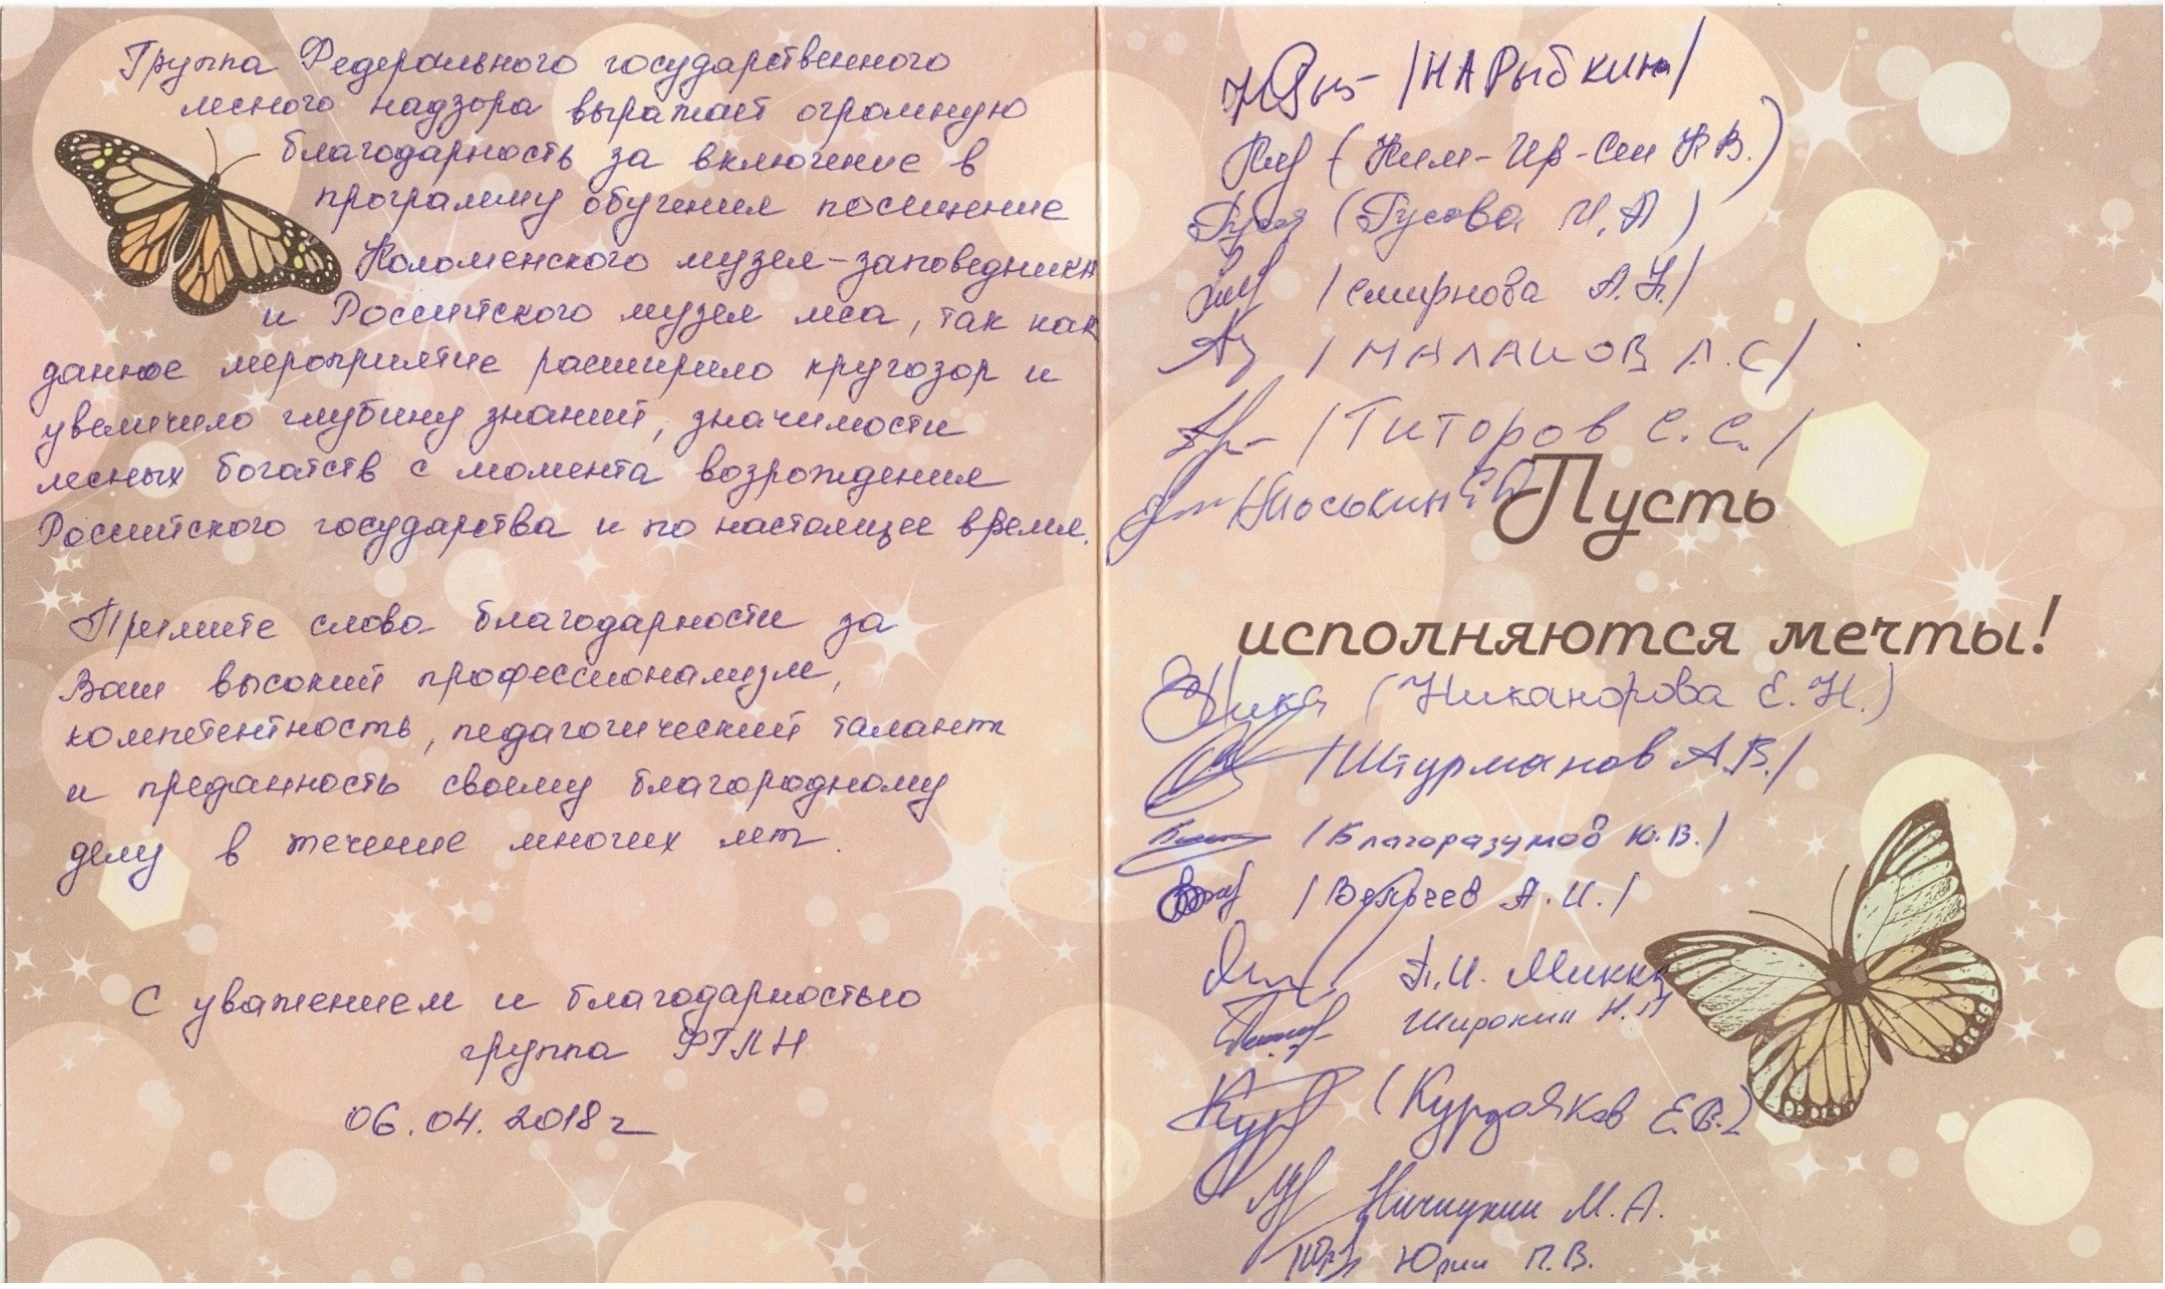 Группа Федерального государственного
лесного надзора выражает огромную
благодарность за включение в
программу обучения посещение
Коломенского музея-заповедника
и Российского музея леса, так как
данное мероприятие расширило кругозор и
увеличило глубину знаний, значимости
лесных богатств с момента возрождения
Российского государства и по настоящее время.
Примите слова благодарности за
Ваш высокий профессионализм,
компетентность, педагогический талант
и преданность своему благородному
делу в течение многих лет.
С уважением и благодарностью
группа ФГЛН
06.04.2018г
/НАРыбкина/
(Ким-Ир-Сен К В.)
(Гусова И.А)
/Смирнова А.Н/
/МАЛАШОВ А.С/
/Титоров С.С./
Пусть
исполняются мечты!
(Никанорова Е.Н.)
/Штурманов А.В./
/Благоразумов Ю.В./
/Вельчев А.И./
Широкий
Кур (Курдаяков Е.В.)
М.А.
П.В.